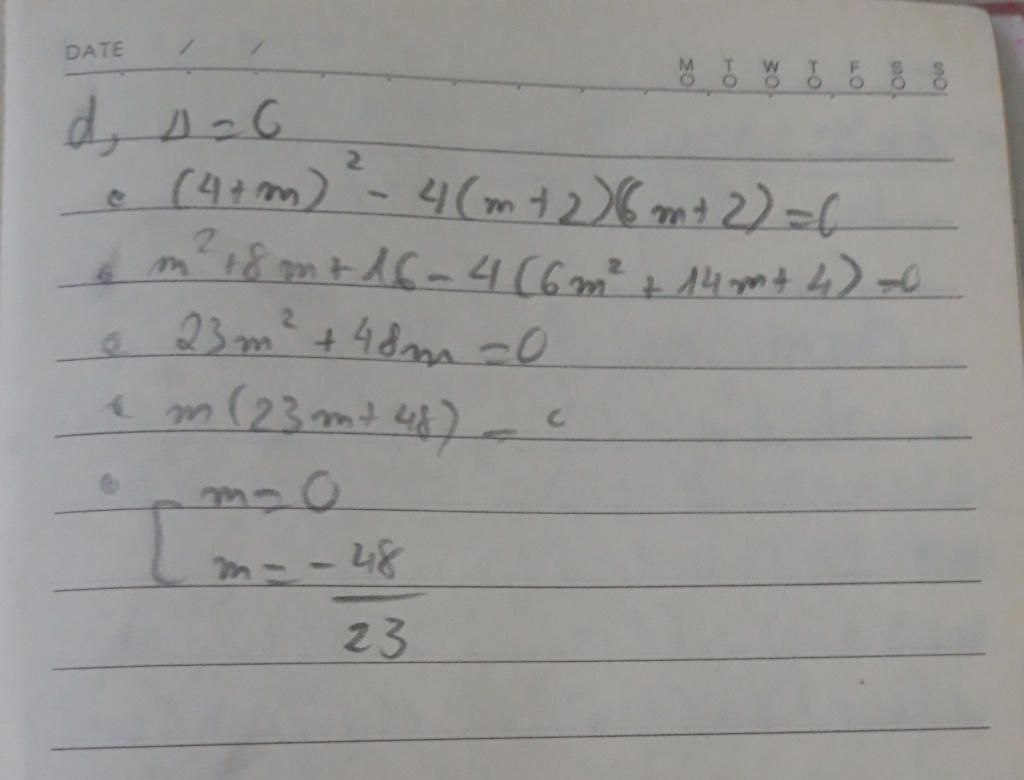 DATE / /
M T W T F S S
d, Δ = 0
(4+m)² - 4(m+2)(6m+2) = 0
m² + 8m + 16 - 4(6m² + 14m + 4) = 0
23m² + 48m = 0
m(23m + 48) = 0
m = 0
m = - 48
23